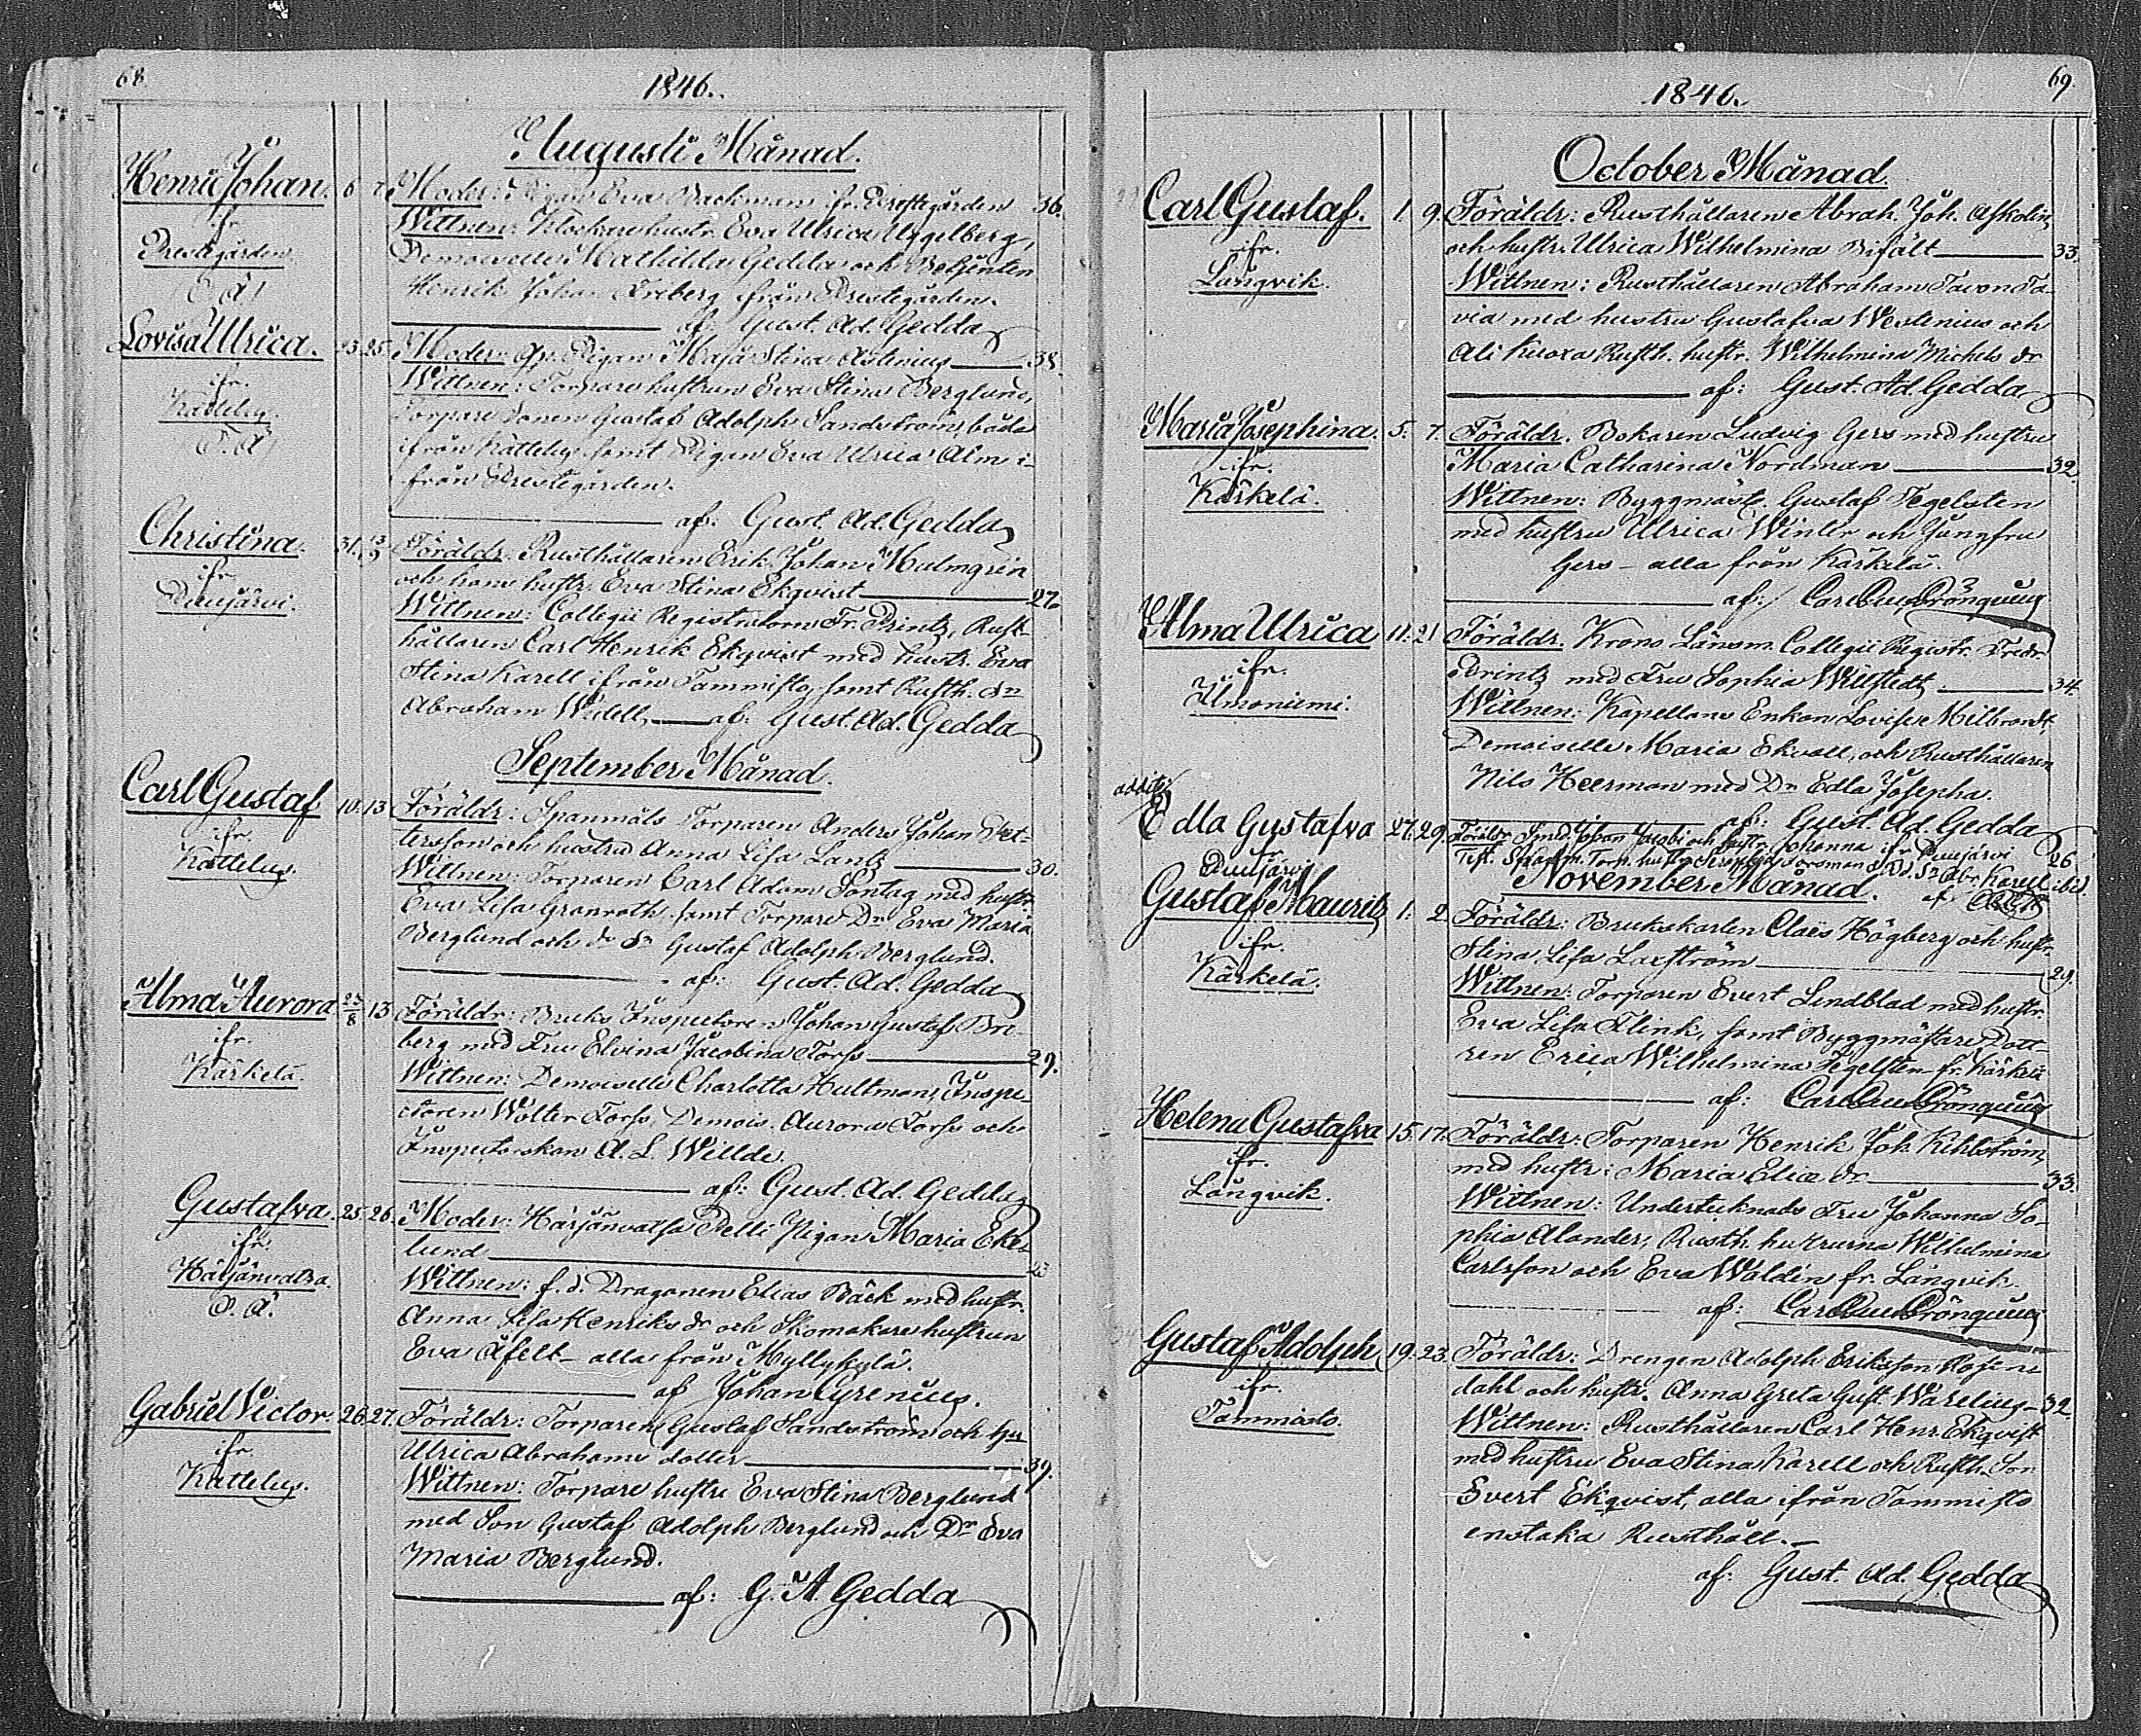 68.
1846.
Augusti Månad.
Henric Johan. 6 7. Moder: Pigan Eva Backman ifr. Prestgården 36.
ifr. Wittnen: Klockarehustr. Eva Ulrica Uggelberg,
Prestgården. Demoiselle Mathilda Gedda och Betjenten
(O.Ä) Henrik Johan ifrån Prestegården.
af Gust. Ad. Gedda
Lovisa Ulrica. 23. 25. Moder: Pigan Maja Stina Astenius 38.
ifr. Wittnen: Torpare hustrun Eva Stina Berglund,
Kattelus. Torpare Sonen Gustaf Adolph Sandström, båda
(O.Ä) ifrån Kattelus, samt Pigan Eva Ulrica Alm i-
från Prestegården.
af: Gust. Ad. Gedda
Christina. 31. 13/9 Föräldr. Rusthållaren Erik Johan Malmgrén
ifr. och hans hustr. Eva Stina Ekqvist 27.
Puujärvi. Wittnen: Collegii Registratorn Fr. Printz, Rust-
hållaren Carl Henrik Ekqvist med hustr. Eva
Stina Karell ifrån Tammisto, samt Rusth. Sn
Abraham Widell, af: Gust. Ad. Gedda
September Månad.
Carl Gustaf 10. 13 Föräldr: Spanmåls Torparen Anders Johan Pet-
ifr. tersson och hustru Anna Lisa Lantz 30.
Kattelus. Wittnen: Torparen Carl Adam Söntag med hustr.
Eva Lisa Granroth, samt Torpare Dr Eva Maria
Berglund och do Sn Gustaf Adolph Berglund.
af: Gust. Ad. Gedda
Alma Aurora 23/8 13 Föräldr: Bruks Inspectoren Johan Gustaf Bre-
ifr. berg med Fru Elvina Jacobina Forss 29.
Kärkelä. Wittnen: Demoiselle Charlotta Hultman, Inspe-
ctoren Wolter Forss, Demois. Aurora Forss och
Inspectorskan A. L. Willde.
af: Gust. Ad. Gedda
Gustafva. 25. 26. Moder: Härjänvatsa Pelli Pigan Maria Eke-
ifr. lund
Härjänvatsa. Wittnen: f. d. Dragonen Elias Bäck med hustr.
O. Ä. Anna Lisa Henriks dr och Skomakare hustrun
Eva Äfelt – alla från Myllykylä.
af Johan Cyrenius.
Gabriel Victor. 26. 27. Föräldr: Torparen Gustaf Sandström och hu
ifr. Ulrica Abrahams dotter 39.
Kattelus. Wittnen: Torpare hustru Eva Stina Berglund
med Son Gustaf Adolph Berglund och Dr Eva
Maria Berglund.
af: G. A Gedda
69.
1846.
October Månad.
Carl Gustaf. 1. 9. Föräldr: Rusthållaren Abrah. Joh. Askolin,
ifr. och hustr. Ulrica Wilhelmina Bifält 33.
Långvik. Wittnen: Rusthållaren Abraham Tavon Ta-
via med hustru Gustafva Westenius och
Ali Kuoxa Rusth. hustr. Wilhelmina Michels dr
af: Gust. Ad. Gedda
Maria Josephina. 5. 7. Föräldr. Bokaren Ludvig Gers med hustru
ifr. Maria Catharina Nordman 32.
Kärkelä. Wittnen: Byggmäst. Gustaf Tegelsten
med hustru Ulrica Winter och Jungfru
Gers – alla från Kärkelä.
af:
Alma Ulrica 11. 21 Föräldr. Krono Länsm. Collegii Registr. Fredr.
ifr. Printz med Fru Sophia Willstedt 34.
Ilmoniemi. Wittnen: Kapellans Enkan Lovise Milbrandt,
Demoiselle Maria Ekvall, och Rusthållaren
Nils Heerman med Dr Edla Josepha.
af: Gust. Ad. Gedda
additi
Edla Gustafva 27. 29. Föräldr Smed Johan Jacobi och hustr. Johanna ifr Puujärvi 26
ifr Test. Torp. hustr Forsman, Sn Abr. Karell ibid
Puujärvi af
November Månad.
Gustaf Mauritz 1. 2 Föräldr: Brukskarlen Claës Högberg och hustr.
ifr. Stina Lisa Laxström 29.
Kärkelä. Wittnen: Torparen Evert Lindblad med hustr.
Eva Lisa Flink, samt Byggmästare Dott-
ren Erica Wilhelmina Tegelsten fr. Kärkelä
af:
Helena Gustafva 15. 17. Föräldr: Torparen Henrik Joh. Kihlström,
ifr. med hustr: Maria Elia dr 33.
Långvik. Wittnen: Undertecknads Fru Johanna So-
phia Alander, Rusth. hustrurna Wilhelmina
Carlsson och Eva Waldén fr. Långvik.
af:
Gustaf Adolph 19. 23. Föräldr: Drengen Adolph Eriksson Rosen-
ifr. dahl och hustr. Anna Greta Gust. Warelius 32.
Tammisto. Wittnen: Rusthållaren Carl Henr. Ekqvist
med hustru Eva Stina Karell och Rusth. Son
Evert Ekqvist, alla ifrån Tammisto
enstaka Rusthåll.
af: Gust. Ad. Gedda